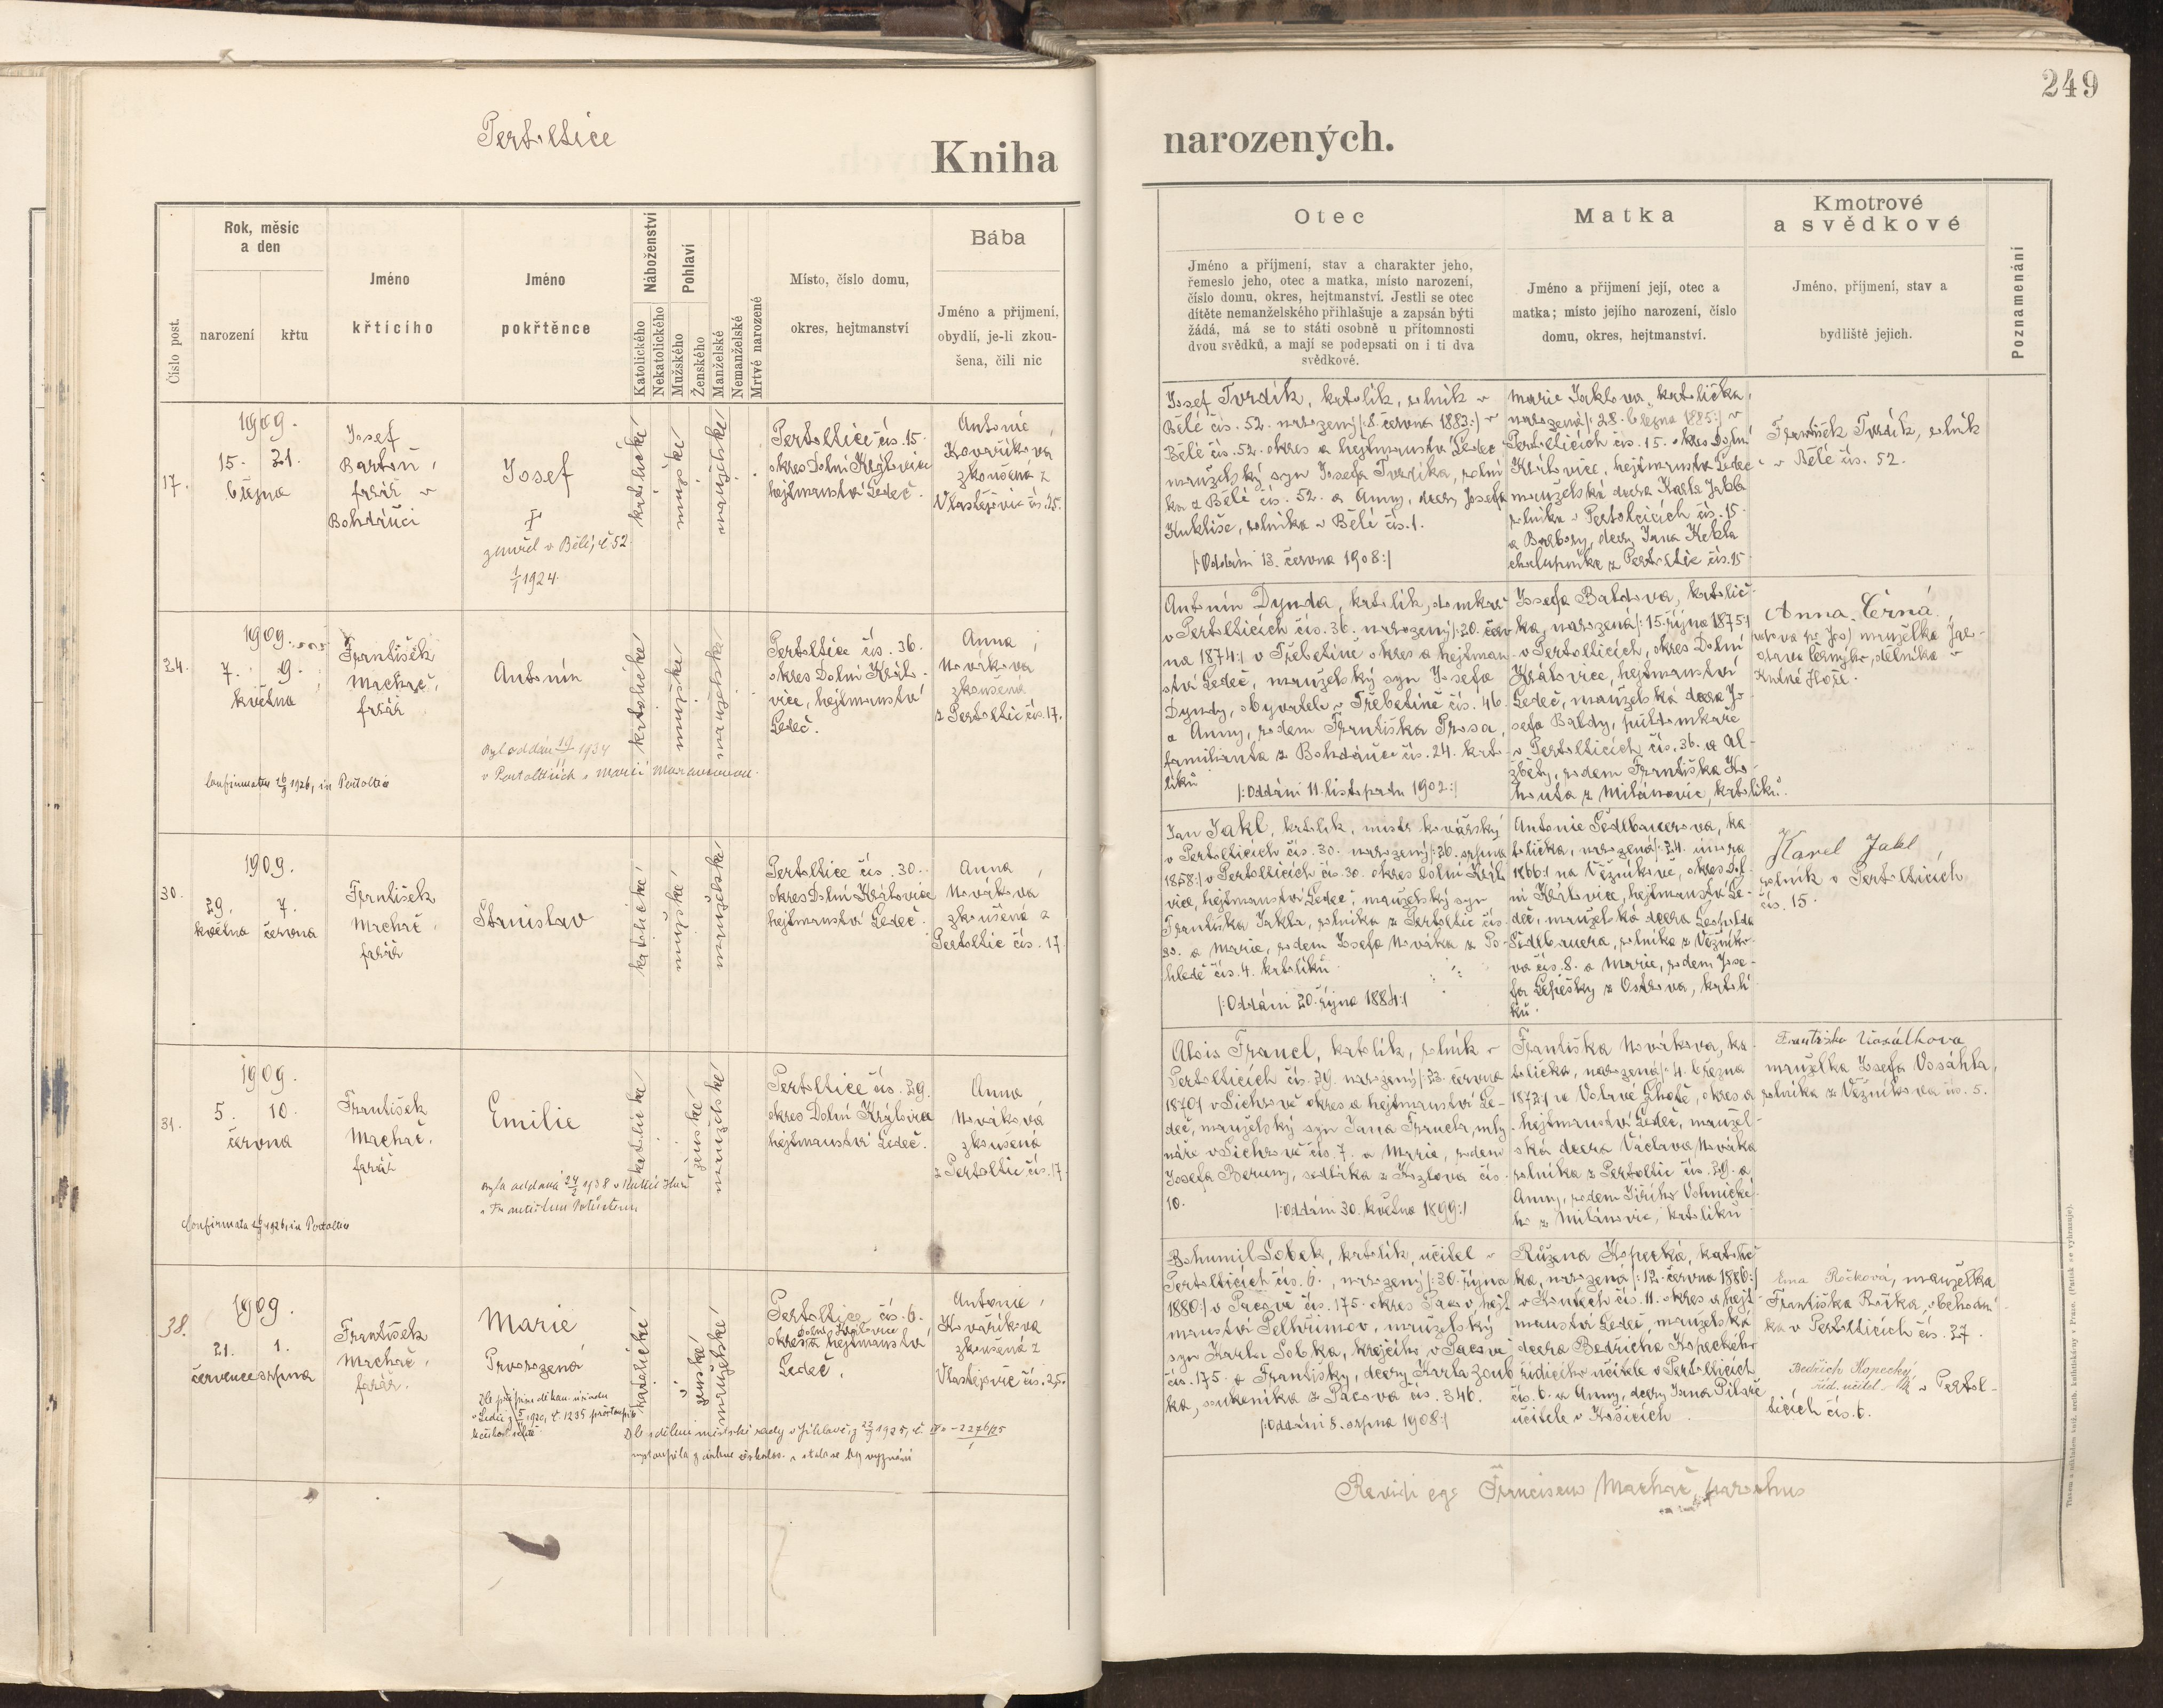 249
Pertoltice
Kniha
narozených.
Číslo post.
Rok, měsíc
a den
narození
křtu
Jméno
křtícího
Jméno
pokřtěnce
Náboženství
Katolického
Nekatolického
Pohlaví
Mužského
Ženského
Manželské
Nemanželské
Mrtvě narozené
Místo, číslo domu,
okres, hejtmanství
Bába
Jméno a příjmení,
obydlí, je-li zkou-
šena, čili nic
Otec
Jméno a příjmení, stav a charakter jeho,
řemeslo jeho, otec a matka, místo narození,
číslo domu, okres, hejtmanství. Jestli se otec
dítěte nemanželského přihlašuje a zapsán býti
žádá, má se to státi osobně u přítomnosti
dvou svědků, a mají se podepsati on i ti dva
svědkové.
Matka
Jméno a příjmení její, otec a
matka; místo jejího narození, číslo
domu, okres, hejtmanství.
Kmotrové
a svědkové
Jméno, příjmení, stav a
bydliště jejich.
Poznamenání
17.
1909.
15. 21.
března
Josef
Bartoň,
farář v
Bohdanči
Josef
†
zemřel v Bělé, č 52
1/1 1924.
katolické
mužské
manželské
Pertoltice čís. 15.
okres Dolní Královice
hejtmanství Ledeč.
Antonie
Kovaříková
zkoušená z
Vlastějovic čís. 25.
Josef Tvrdík, katolík, rolník v
Bělé čís. 52. narozený |:8. června 1883:| v
Bělé čís. 52. okres a hejtmanství Ledeč
manželský syn Josefa Tvrdíka, rolní
ka z Bělé čís. 52. a Anny, dcery Josefa
Kukliše, rolníka v Bělé čís. 1.
|:Oddáni 13. června 1908:|
Marie Jaklova, katolička,
narozená |:28. března 1885:| v
Pertolticích čís. 15. okres Dolní
Královice, hejtmanství Ledeč
manželská dcera Karla Jakla
rolníka v Pertolticích čís. 15.
a Barbory, dcery Jana Kekla
chalupníka z Pertoltic čís. 15
František Tvrdík, rolník
v Bělé čís. 52.
24.
1909.
7. 9.
května
František
Machač,
farář
Antonín
Byl oddán 1934
v Pertolticích s Marií
Confirmatus 1926, in Pertoltic
katolické
mužské
manželské
Pertoltice čís. 36.
okres Dolní Králo-
vice, hejtmanství
Ledeč.
Anna
Nováková
zkoušená
z Pertoltic čís. 17.
Antonín Dynda, katolík, domkář
v Pertolticích čís. 36. narozený |:20. červ
na 1874:| v Třebětíně okres a hejtman
ství Ledeč, manželský syn Josefa
Dyndy, obyvatele v Třebětíně čís. 46.
a Anny, rodem Františka Prosa,
familianta z Bohdanče čís. 24. kato-
líků
|:Oddáni 11. listopadu 1902:|
Josefa Baldova, katolič-
ka, narozená |:15. října 1875:|
v Pertolticích, okres Dolní
Královice, hejtmanství
Ledeč, manželská dcera Jo-
sefa Baldy, půldomkáře
v Pertolticích čís. 36. a Al-
žběty, rodem Františka Ko-
houta z Milánovic, katolíků.
Anna Černá
manželka Jar-
oslava Černýho, dělníka v
Kutné Hoře.
30.
1909.
29. 7.
května června
František
Machač,
farář
Stanislav
katolické
mužské
manželské
Pertoltice čís. 30.
okres Dolní Královice
hejtmanství Ledeč.
Anna
Nováková
zkoušená z
Pertoltic čís. 17.
Jan Jakl, katolík, mistr kovářský
v Pertolticích čís. 30. narozený |:26. srpna
1858:| v Pertolticích čís. 30. okres Dolní Králo
vice, hejtmanství Ledeč, manželský syn
Františka Jakla, rolníka z Pertoltic čís.
30. a Marie, rodem Josefa Nováka z Po-
hledě čís. 4. katolíků
|:Oddáni 20. října 1884:|
Antonie Šedlbauerova, ka
tolička, narozená |:24. února
1866:| na Věžníkově, okres Dol-
ní Královice, hejtmanství Le-
deč, manželská dcera Leopolda
Šedlbauera, rolníka z Věžníko-
va čís. 8. a Marie, rodem Jose-
fa Lepešky z Ostrova, katolí
ků.
Karel Jakl
rolník v Pertolticích
čís. 15.
31.
1909.
5. 10.
června
František
Machač,
farář
Emilie
byla oddána 1938 v Kutné Hoře
s Františkem
Confirmata 1926, in Pertoltic
katolické
ženské
manželské
Pertoltice čís. 29.
okres Dolní Královice
hejtmanství Ledeč.
Anna
Nováková
zkoušená
z Pertoltic čís. 17.
Alois Francl, katolík, rolník v
Pertolticích čís. 29. narozený |:23. června
1870:| v Sichrově okres a hejtmanství Le-
deč, manželský syn Jana Francla, mly
náře v Sichrově čís. 7. a Marie, rodem
Josefa Berany, sedláka z Kozlova čís.
10.
|:Oddáni 30. května 1899:|
Františka Nováková, ka
tolička, narozená |:4. března
1872:| ve Volavé Lhotě, okres a
hejtmanství Ledeč, manžel-
ská dcera Václava Nováka
rolníka z Pertoltic čís. 29. a
Anny, rodem Jiřího Vohnické-
ho z Milánovic, katolíků
Františka
manželka Josefa Vosáhla,
rolníka z Věžníkova čís. 5.
38.
1909.
21. 1.
července srpna
František
Machač,
farář.
Marie
Prvorozená
katolické
ženské
manželské
Pertoltice čís. 6.
Dolní Královice
okres a hejtmanství
Ledeč.
Antonie
Kovaříkova
zkoušená z
Vlastějovic čís. 25.
Dle sdělení městské rady v Jihlavě z 1925, č.
vystoupila z církve a stala se bez vyznání
Bohumil Sobek, katolík, učitel v
Pertolticích čís. 6., narozený |:30. října
1880:| v Pacově čís. 175. okres Pacov, hejt
manství Pelhřimov, manželský
syn Karla Sobka, krejčího v Pacově
čís. 175. a Františky, dcery Karla Zoub
ka, soukeníka z Pacova čís. 346.
|:Oddáni 8. srpna 1908:|
Růžena Kopecká, katolič
ka, narozená |:12. června 1886:|
v Koutech čís. 11. okres a hejt
manství Ledeč, manželská
dcera Bedřicha Kopeckého
řídícího učitele v Pertolticích
čís. 6. a Anny, dcery Jana Piláře
učitele v Košicích
Ema Růčková, manželka
Františka Růčka, obchodní
ka v Pertolticích čís. 27.
Bedřich Kopecký
říd. učitel v Pertol-
ticích čís. 6.
Revidi ego Franciscus Machač, parochus